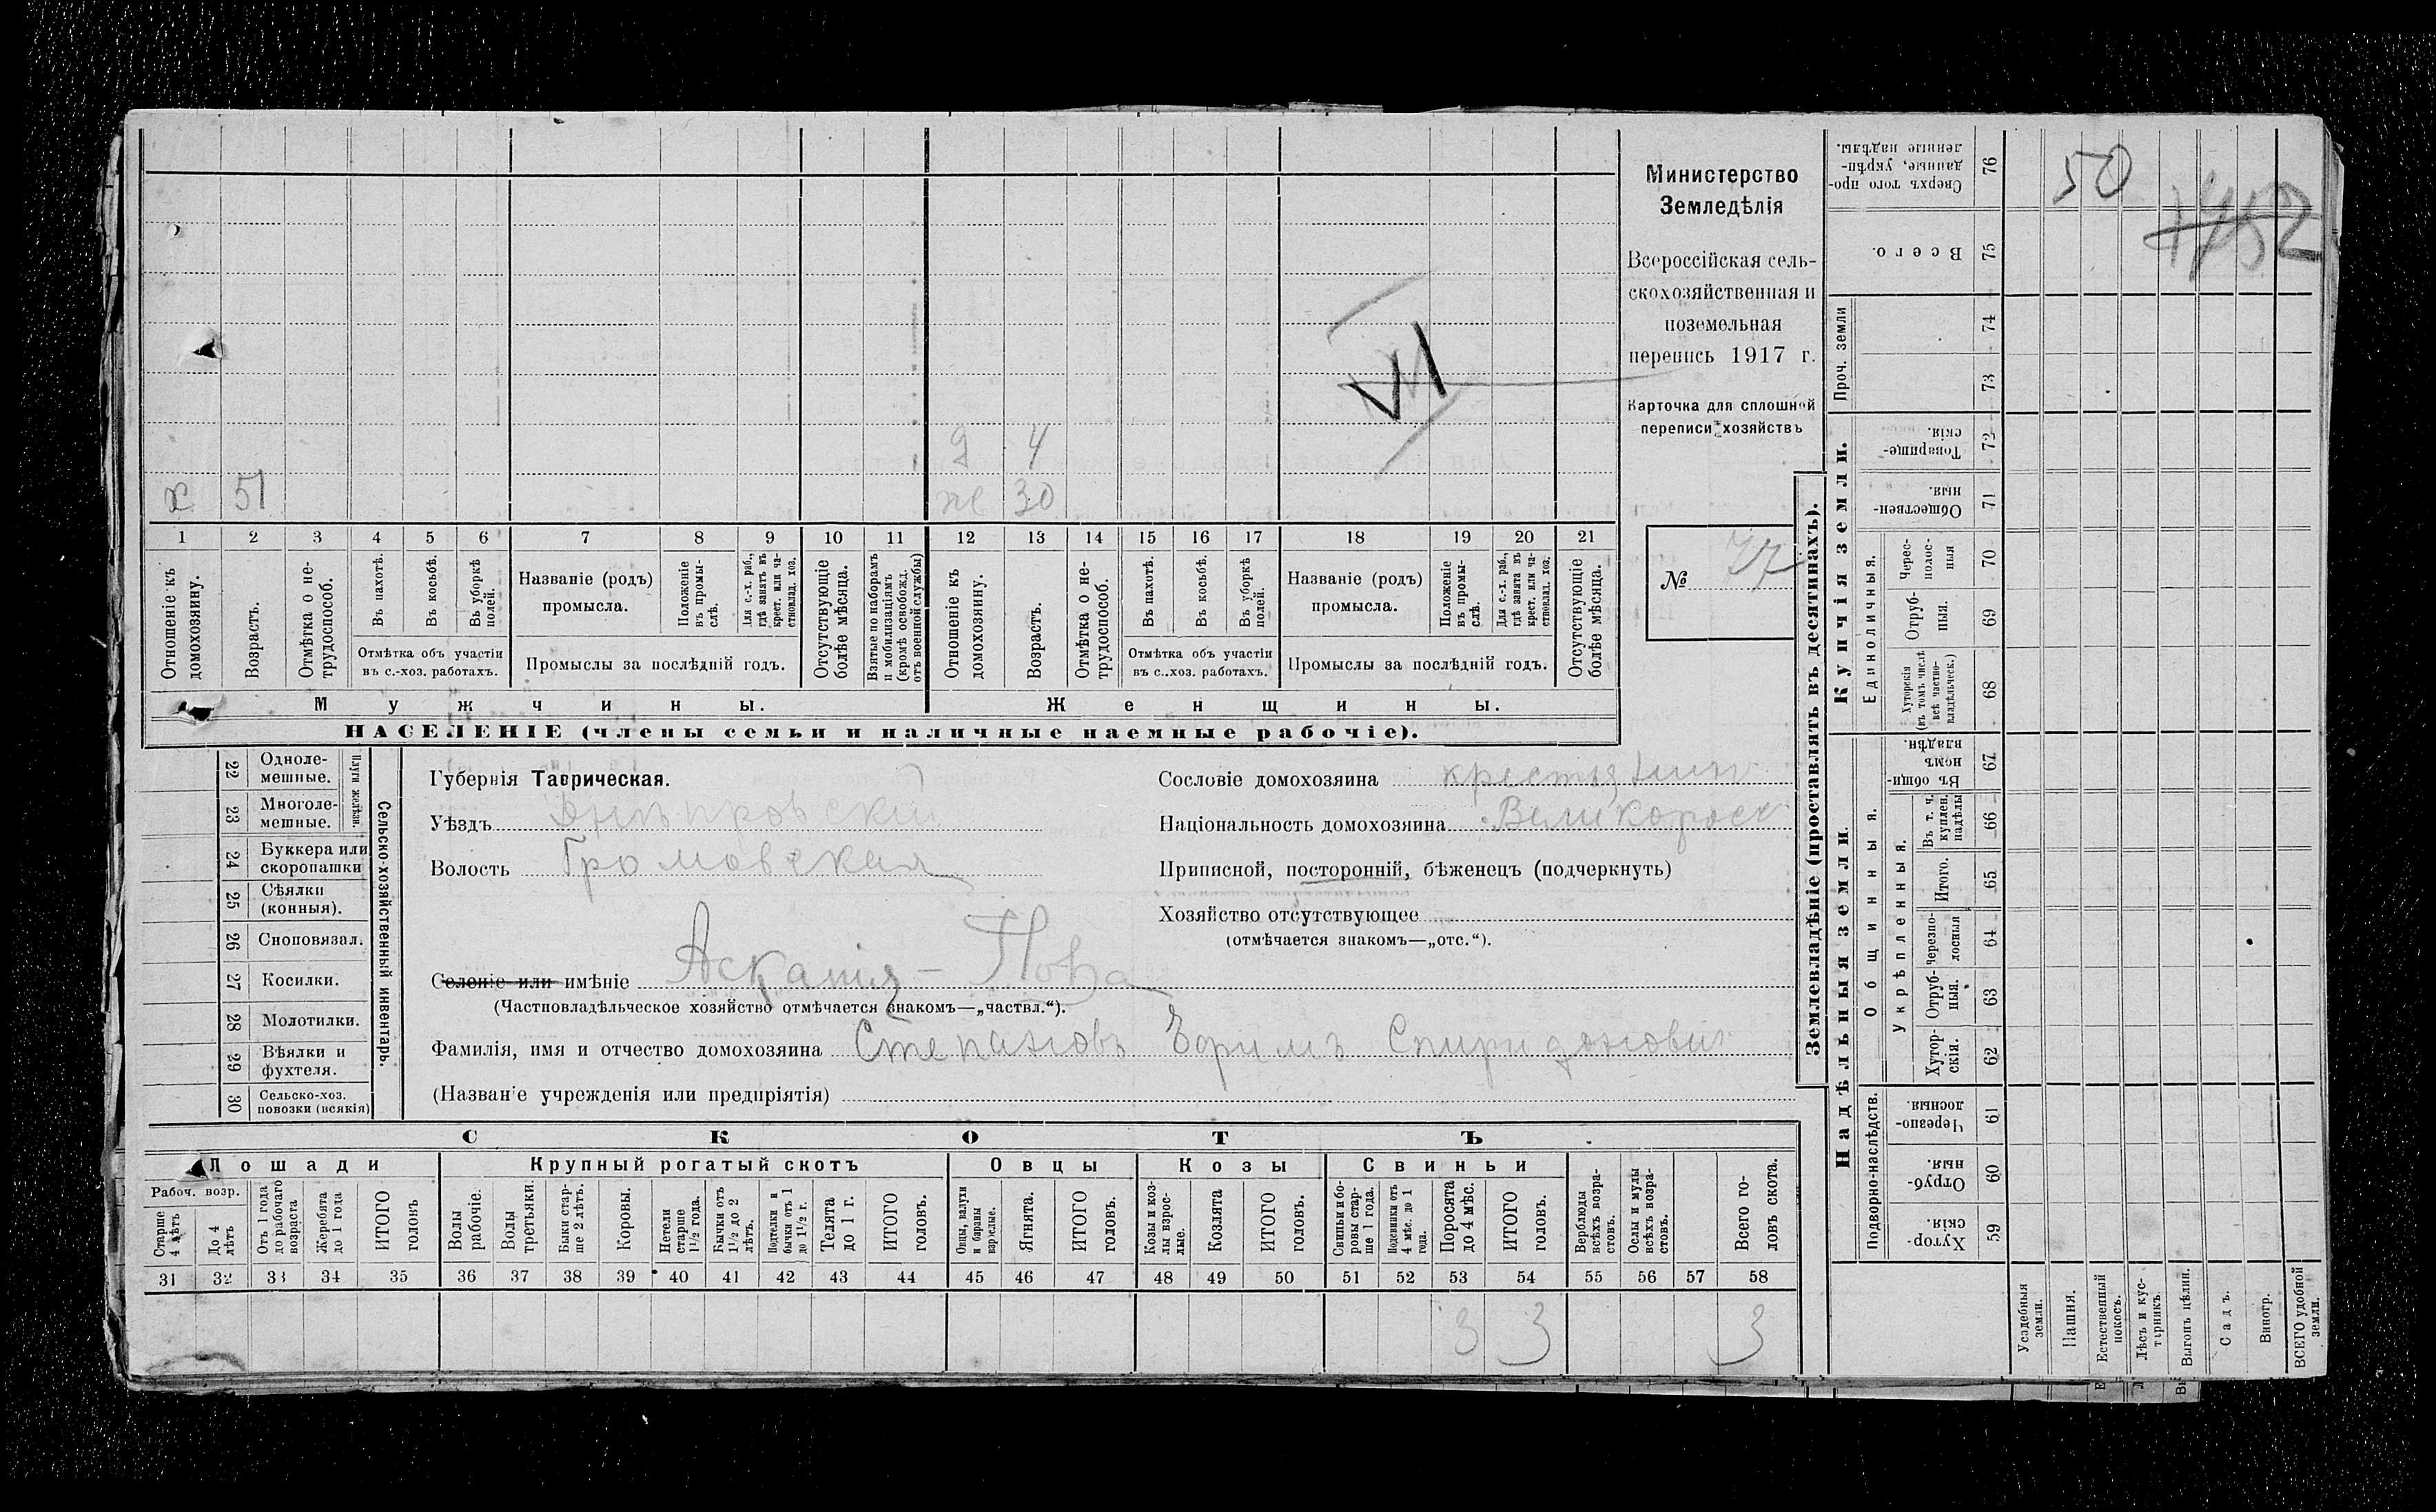 Министерство
Земледѣлія
Всероссійская сель-
скохозяйственная и
поземельная
перепись 1917 г.
Карточка для сплошной
переписи хозяйствъ
№ 47
VI
д 4
х 51 ж 30
1 2 3 4 5 6 7 8 9 10 11 12 13 14 15 16 17 18 19 20 21
Отношеніе къ домохозяину.
Возрастъ.
Отмѣтка о не-трудоспособ.
Въ пахотѣ.
Въ косьбѣ.
Въ уборкѣ полей.
Отмѣтка объ участіи
въ с.-хоз. работахъ.
Названіе (родъ)
промысла.
Положеніе въ промы-слѣ.
Для с.-х. раб., гдѣ занятъ въ крест. или ча-стновлад. хоз.
Промыслы за послѣдній годъ.
Отсутствующіе болѣе мѣсяца.
Взятые по наборамъ и мобилизаціямъ (кромѣ освобожд. отъ военной службы)
Отношеніе къ домохозяину.
Возрастъ.
Отмѣтка о не-трудоспособ.
Въ пахотѣ.
Въ косьбѣ.
Въ уборкѣ полей.
Отмѣтка объ участіи
въ с..хоз. работахъ.
Названіе (родъ)
промысла.
Положеніе въ промы-слѣ.
Для с.-х. раб., гдѣ занята въ крест. или ча-стновлад. хоз.
Промыслы за послѣдній годъ.
Отсутствующіе болѣе мѣсяца.
Мужчины. Женщины.
НАСЕЛЕНІЕ (члены семьи и наличные наемные рабочіе).
22 Одноле-мешные.
23 Многоле-мешные.
Плуги желѣзн.
24 Буккера или скоропашки
25 Сѣялки (конныя).
26 Сноповязал.
27 Косилки.
28 Молотилки.
29 Вѣялки и фухтеля.
30 Сельско-хоз. повозки (всякія)
Сельско-хозяйственный инвентарь.
Губернія Таврическая.
Уѣздъ Днѣпровскій
Волость Громовская
Селеніе или имѣніе Асканія-Нова
(Частновладѣльческое хозяйство отмѣчается знакомъ—„частвл.“).
Фамилія, имя и отчество домохозяина Степановъ Ефимъ Спиридоновичъ
(Названіе учрежденія или предпріятія)
Сословіе домохозяина крестьянинъ
Національность домохозяина Великороссъ
Приписной, посторонній, бѣженецъ (подчеркнуть)
Хозяйство отсутствующее
(отмѣчается знакомъ—„отс.“).
СКОТЪ.
Лошади Крупный рогатый скотъ Овцы Козы Свиньи
Рабоч. возр.
Старше 4 лѣтъ
До 4 лѣтъ
Отъ 1 года до рабочаго возраста
Жеребята до 1 года
ИТОГО головъ
Волы рабочіе.
Волы третьяки.
Быки стар-ше 2 лѣтъ.
Коровы.
Нетели старше 1 1/2 года.
Бычки отъ 1 1/2 до 2 лѣтъ.
Подтелки и бычки отъ 1 до 1 1/2 г.
Телята до 1 г.
ИТОГО головъ.
Овцы, валухи и бараны взрослые.
Ягнята.
ИТОГО головъ.
Козы и коз-лы взрос-лые.
Козлята
ИТОГО головъ.
Свиньи и бо-ровы стар-ше 1 года.
Подсвинки отъ 4 мѣс. до 1 года.
Поросята до 4 мѣс.
ИТОГО головъ.
Верблюды всѣхъ возра-стовъ.
Ослы и мулы всѣхъ возра-стовъ.
Всего го-ловъ скота.
31 32 33 34 35 36 37 38 39 40 41 42 43 44 45 46 47 48 49 50 51 52 53 54 55 56 57 58
3 3 3
Землевладѣніе (проставлять въ десятинахъ).
Надѣльныя земли. Купчія земли.
Проч. земли
Подворно-наслѣдств.
Общинныя.
Укрѣпленныя.
Единоличныя.
Сверхъ того про-данные, укрѣп-ленные надѣлы. 76
Всего. 75
74
73
Товарище-скія. 72
Обществен-ныя. 71
Черес-полос-ныя 70
Отруб-ныя. 69
Хуторскія (въ томъ числѣ всѣ частно-владѣльческ.) 68
Въ общи-номъ владѣн. 67
Въ т. ч. куплен. надѣлы 66
Итого. 65
Черезпо-лосныя 64
Отруб-ныя. 63
Хутор-скія. 62
Черезпо-лосныя. 61
Отруб-ныя. 60
Хутор-скія. 59
Усадебныя земли.
Пашня.
Естественный покосъ.
Лѣсъ и кус-тарникъ.
Выгонъ цѣлин.
Садъ.
Виногр.
ВСЕГО удобной земли.
50